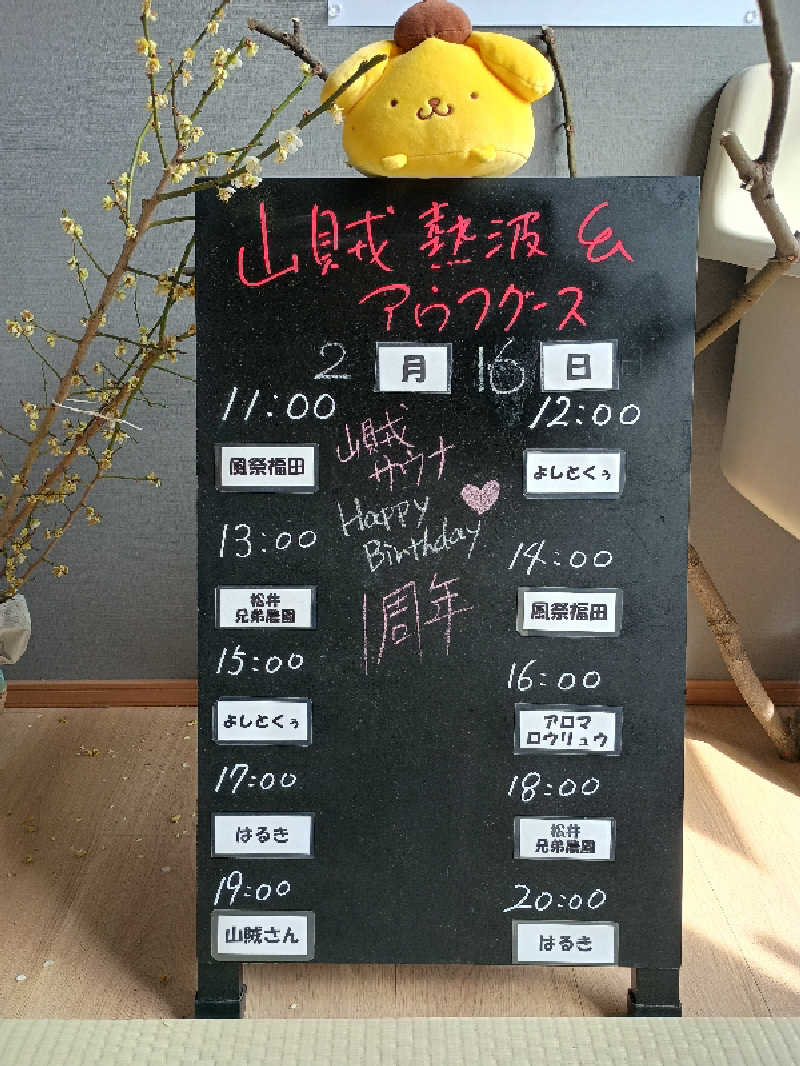 山賊 熱波 &
アウフグース
2月16日
11:00
風祭福田
12:00
よしとくぅ
山賊
サウナ
Happy
Birthday
1周年
13:00
松井
兄弟農園
14:00
風祭福田
15:00
よしとくぅ
16:00
アロマ
ロウリュウ
17:00
はるき
18:00
松井
兄弟農園
19:00
山賊さん
20:00
はるき